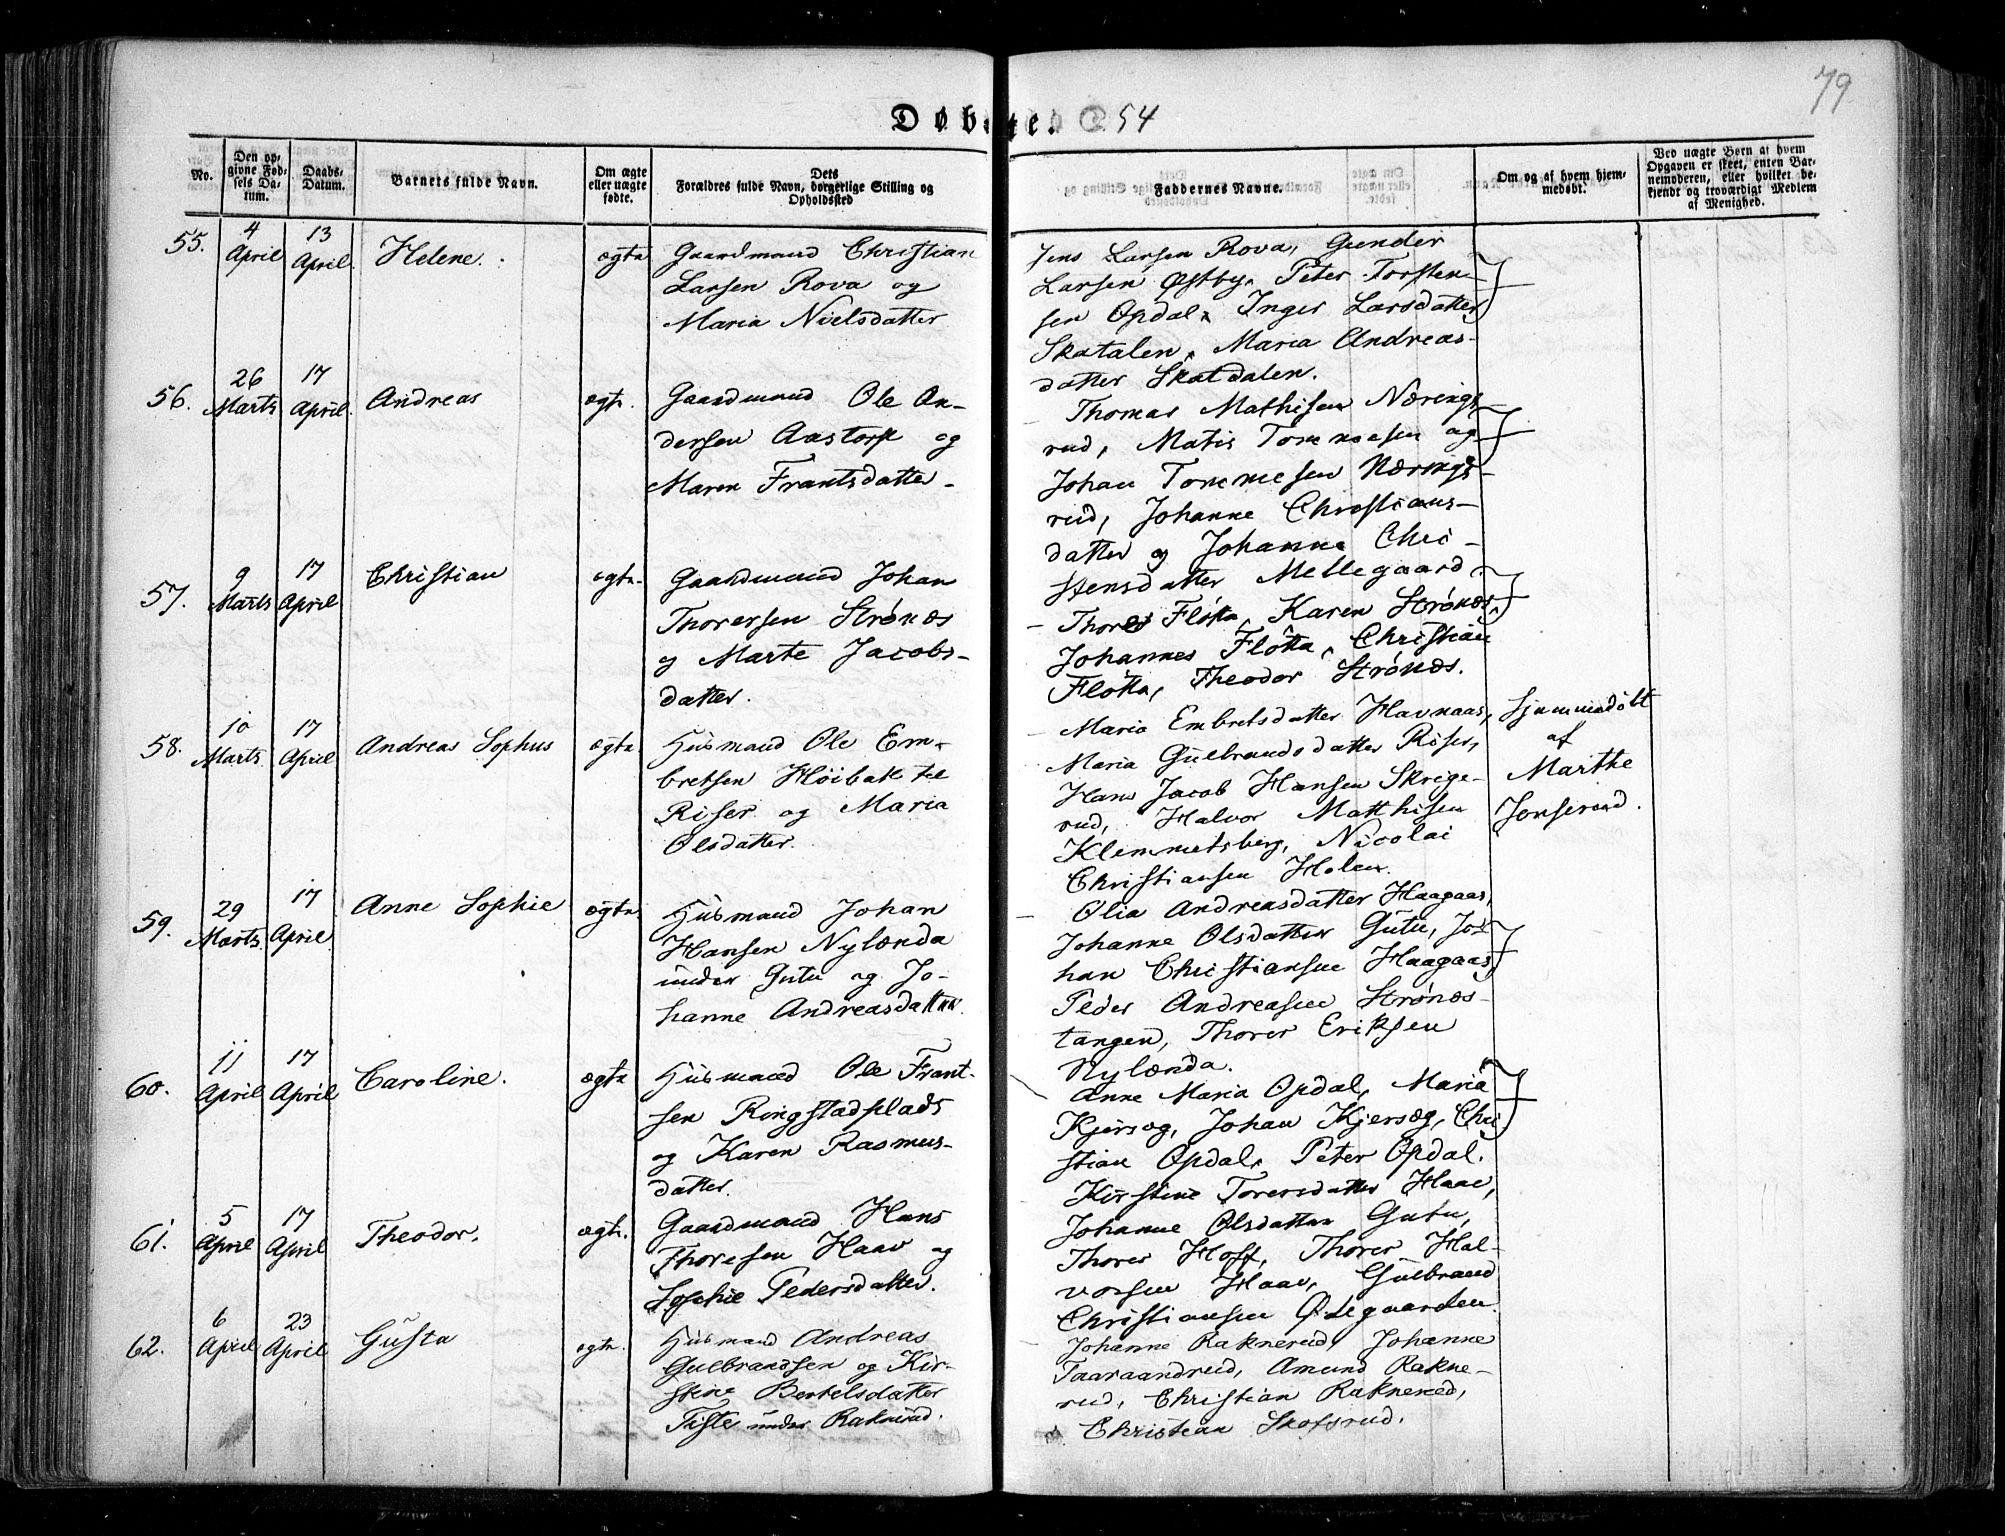 79
Døbte. 54
No.
Den opgivne Fødsels Datum.
Daabs-Datum.
Barnets fulde Navn.
Om ægte eller uægte fødte.
Dets Forældres fulde Navn, borgerlige Stilling og Opholdssted
Faddernes Navne.
Om og af hvem hjemmedøbt.
Ved uægte Børn af hvem Opgaven er skeet, enten Barnemoderen, eller hvilket bekjendt og troværdigt Medlem af Menighed.
55. 4 April 13 April Helene. ægte
Gaardmand Christian
Larsen Rova og
Maria Nielsdatter
Jens Larsen Rova, Gunder
Larsen Østby, Peter Torsten-
sen Opdal, Inger Larsdatter
Skatalen, Maria Andreas-
datter Skatdalen.
56. 26 Marts 17 April Andreas ægte.
Gaardmand Ole An-
dersen Aastorp og
Maren Frantsdatter.
Thomas Mathisen Nærings-
rud, Matis Tommesen og
Johan Tommesen Nærings-
rud, Johanne Christians-
datter og Johanne Chri-
stensdatter Mellegaard.
57. 9 Marts 17 April Christian ægte.
Gaardmand Johan
Thorersen Strønæs
og Marte Jacobs-
datter.
Thores Fløtta, Karen Strønæs,
Johannes Fløtta, Christian
Fløtta, Theodor Strønæs.
58. 10 Marts 17 April Andreas Sophus ægte
Husmand Ole Em-
bretsen Høibak til
Riser og Maria
Olsdatter.
Maria Embretsdatter Havnaas,
Maria Gulbrandsdatter Riser,
Hans Jacob Hansen Skrige-
rud, Halvor Matthisen
Klemmetsberg, Nicolai
Christiansen Holen.
Hjemmedøbt
af
Marthe
Jonserud.
59. 29 Marts 17 April Anne Sophie ægte
Husmand Johan
Hansen Nylænda
under Gutu og Jo-
hanne Andreasdatter.
Olia Andreasdatter Haagaas,
Johanne Olsdatter Gutu, Jo-
han Christiansen Haagaas,
Peder Andreasen Strønæs-
tangen, Thorer Eriksen
Nylænda.
60. 11 April 17 April Caroline. ægte
Husmand Ole Frant-
sen Ringstadplads
og Karen Rasmus-
datter.
Anne Maria Opdal, Maria
Kjersøg, Johan Kjersæg, Chri-
stian Opdal, Peter Opdal.
61. 5 April 17 April Theodor. ægte.
Gaardmand Hans
Thoresen Haav og
Sophie Pedersdatter.
Kirstine Torersdatter Haav,
Johanne Olsdatter Gutu,
Thorer Hoff, Thorer Hal-
vorsen Haav, Gulbrand
Christiansen Ødegaarden.
62. 6 April 23 April Gusta ægte.
Husmand Andreas
Gulbrandsen og Kir-
stine Bertelsdatter
Tiste under Raknerud.
Johanne Raknerud, Johanne
Taaraandrud, Amund Rakne-
rud, Christian Raknerud,
Christian Skofsrud.